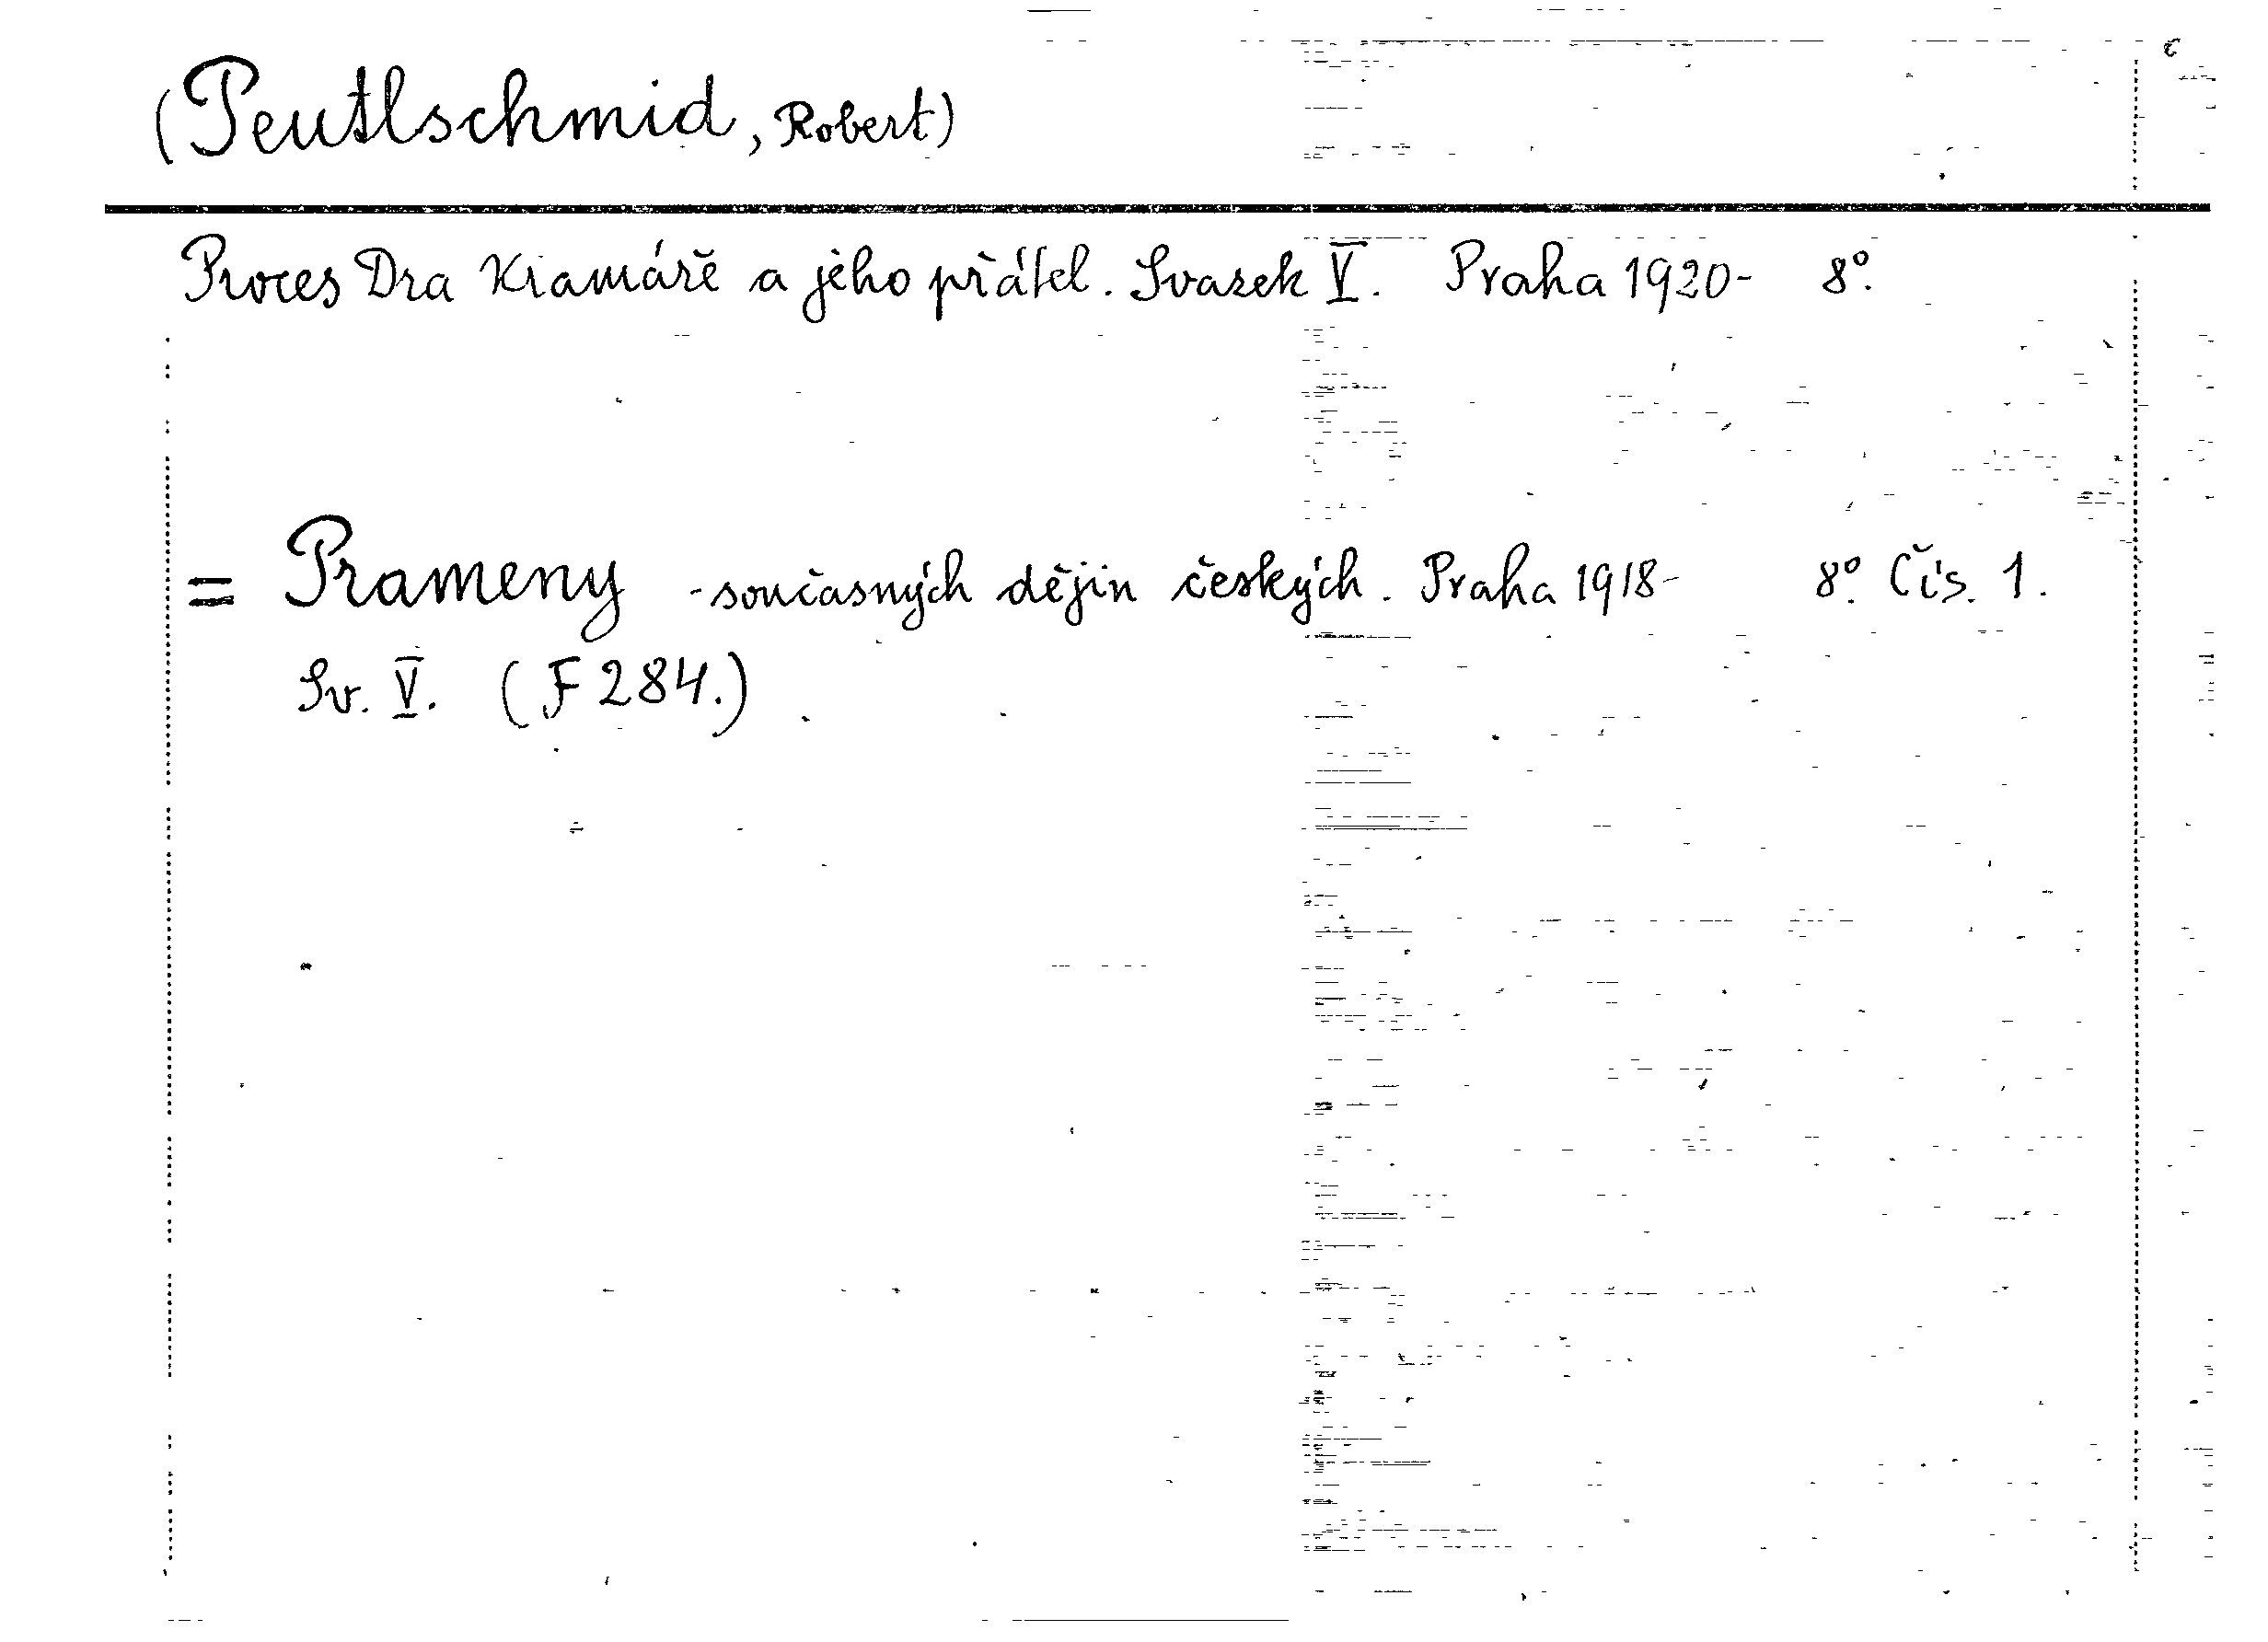 (Peutlschmid, Robert)
Proces Dra Kramáře a jeho přátel. Svazek V. Praha 1920- 8°.
= Prameny současných dějin českých. Praha 1918- 8°. Čís. 1.
Sv. V. (F 284.)